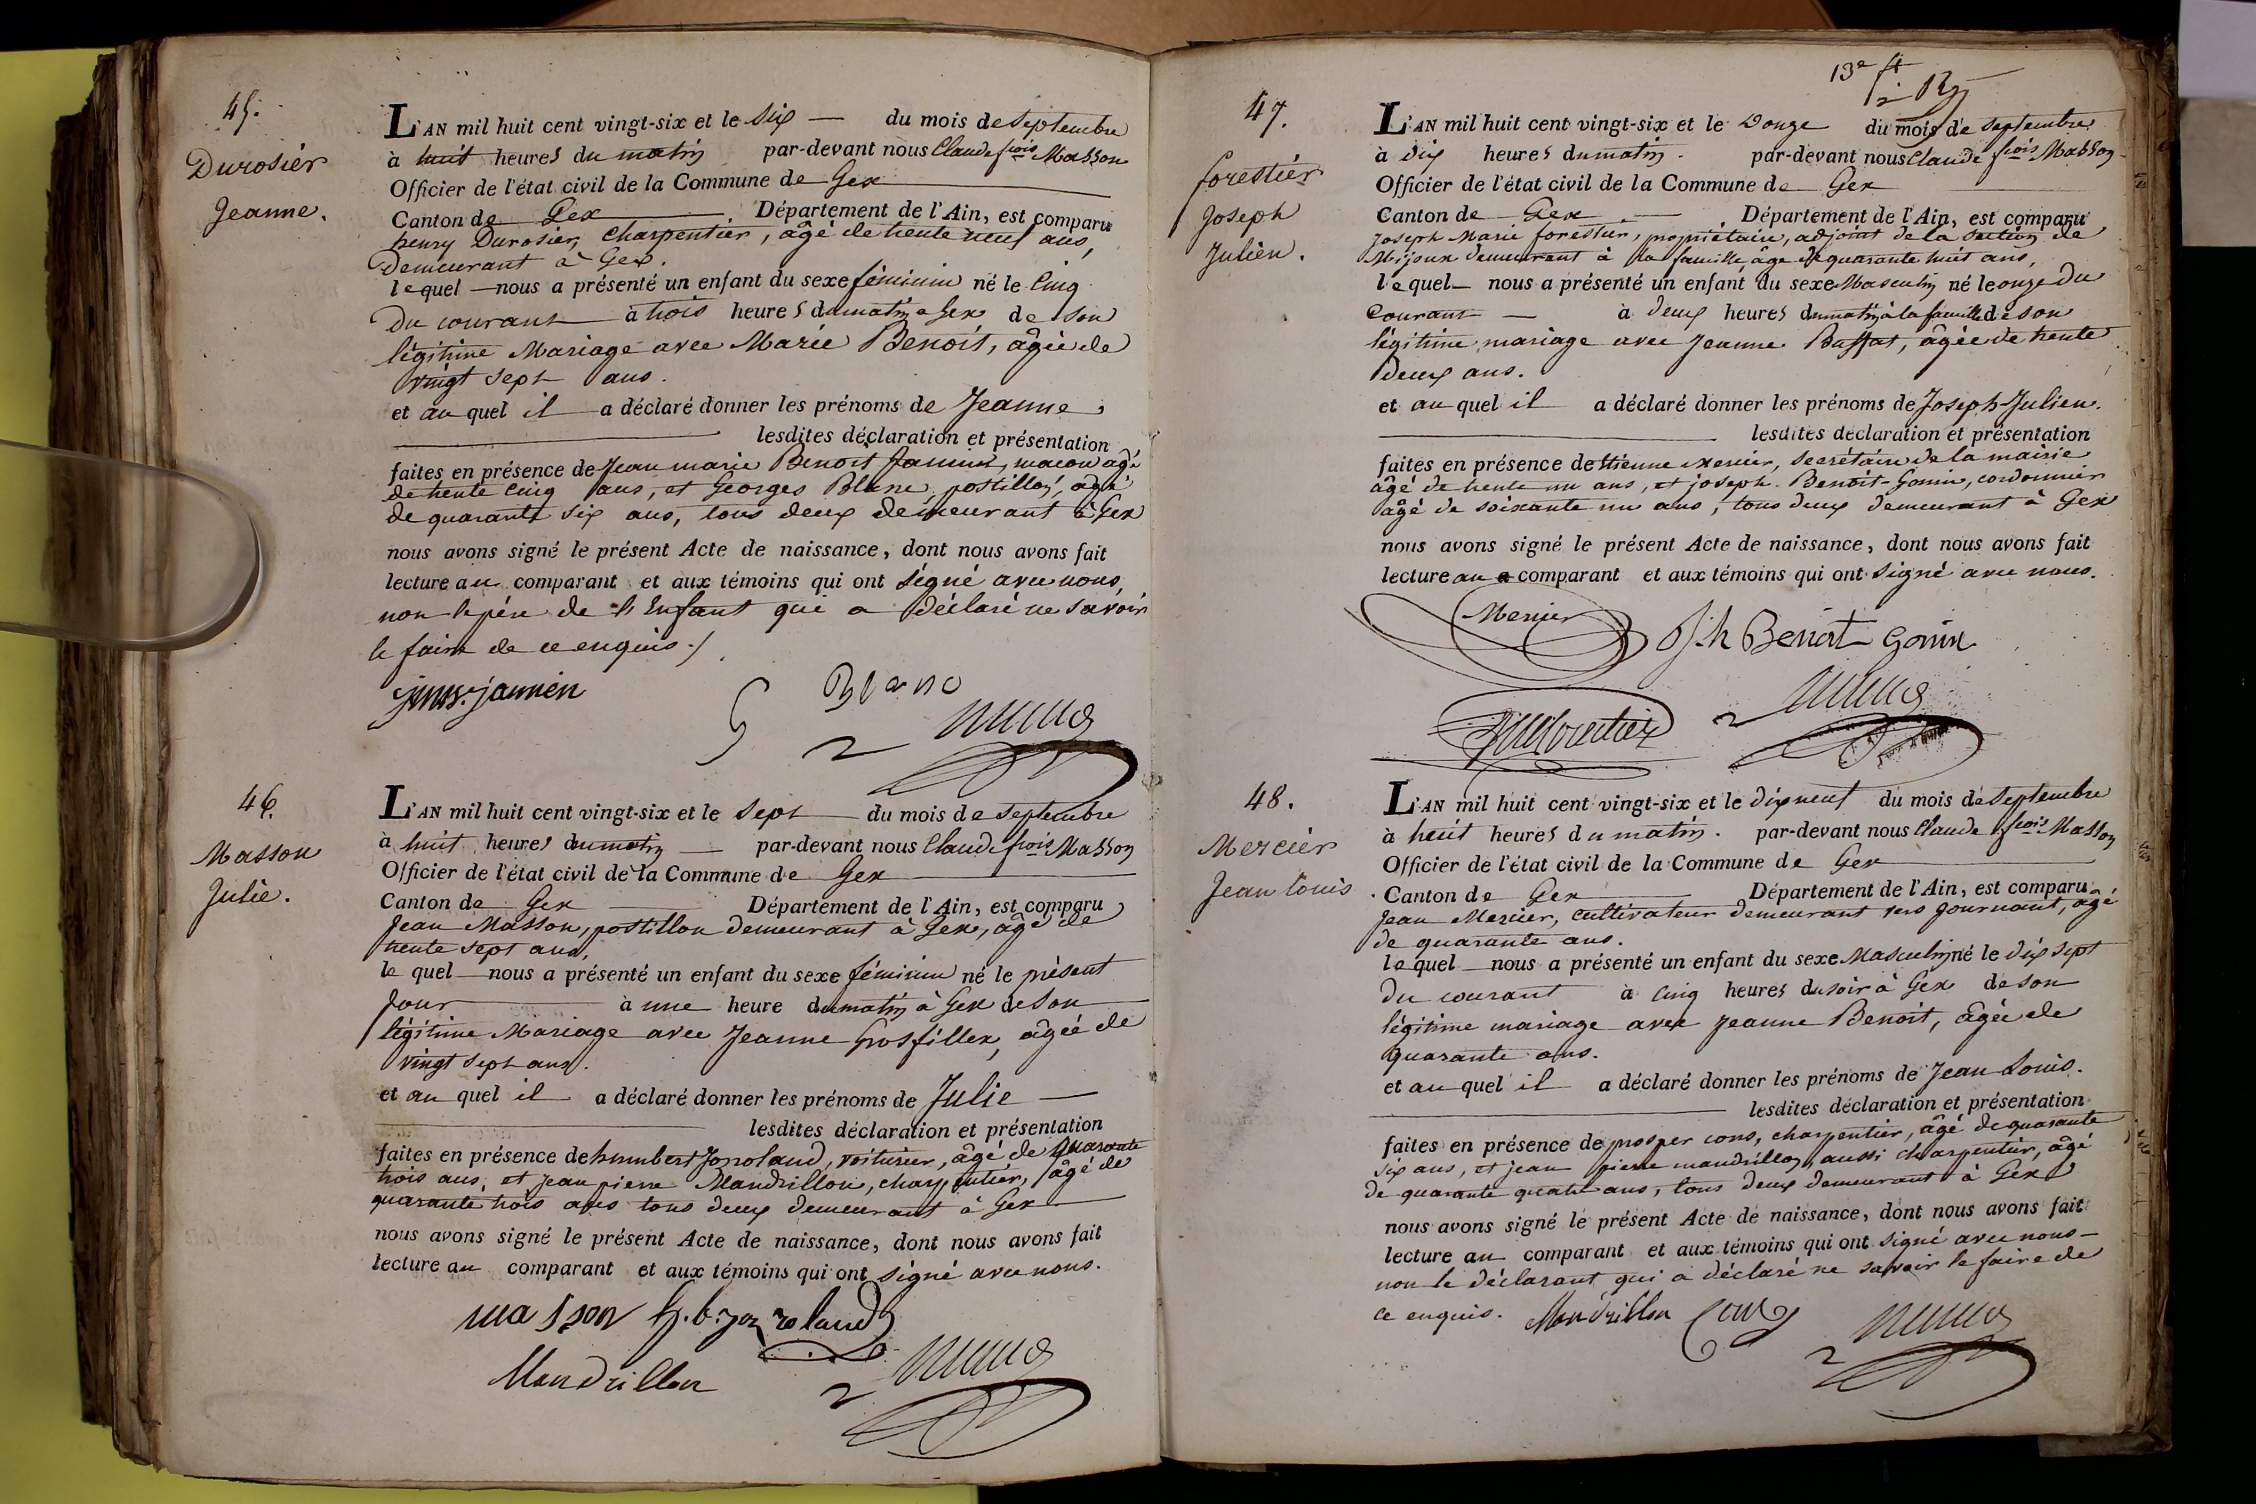 45.
Durosier
Jeanne.
L'AN mil huit cent vingt-six et le six — du mois de Septembre
à huit heures du matin par-devant nous Claude fcois Masson
Officier de l'état civil de la Commune de Gex
Canton de Gex Département de l'Ain, est comparu
henry Durosier, charpentier, âgé de trente neuf ans,
demeurant à Gex.
lequel — nous a présenté un enfant du sexe féminin né le Cinq
du courant à trois heures du matin a Gex de son
légitime Mariage avec Marie Benoit, âgée de
vingt sept ans.
et au quel il a déclaré donner les prénoms de Jeanne,
lesdites déclaration et présentation
faites en présence de Jean marie Benoit Jannin, macon agé
de trente cinq ans, et Georges Blanc, postillon, agé
de quarante six ans, tous deux demeurant à Gex
nous avons signé le présent Acte de naissance, dont nous avons fait
lecture au comparant et aux témoins qui ont signé avec nous,
non le père de l'Enfant qui a déclaré ne savoir
le faire de ce enquis ./
jannin
G Blanc
46.
Masson
Julie.
L'AN mil huit cent vingt-six et le sept — du mois de Septembre
à huit heures du matin — par-devant nous Claude fcois Masson
Officier de l'état civil de la Commune de Gex
Canton de Gex Département de l'Ain, est comparu
Jean Masson, postillon demeurant à Gex, âgé de
trente sept ans,
le quel — nous a présenté un enfant du sexe féminin né le présent
jour à une heure du matin à Gex de son
légitime Mariage avec Jeanne Grosfillex, âgée de
vingt sept ans.
et au quel il a déclaré donner les prénoms de Julie —
lesdites déclaration et présentation
faites en présence de humbert Jonroland, voiturier, âgé de quarante
trois ans, et jean pierre Mandrillon, charpentier, âgé de
quarante trois ans tous deux demeurant à Gex
nous avons signé le présent Acte de naissance, dont nous avons fait
lecture au comparant et aux témoins qui ont signé avec nous.
masson
Mandrillon
13e ft
47.
forestier
Joseph
Julien.
L'AN mil huit cent vingt-six et le Douze du mois de Septembre
à dix heures du matin. par-devant nous Claude fcois Masson
Officier de l'état civil de la Commune de Gex
Canton de Gex — Département de l'Ain, est comparu
Joseph Marie forestier, propriétaire, adjoint de la section de
Mijoux demeurant à la faucille âgé de quarante huit ans,
lequel — nous a présenté un enfant du sexe Masculin né le onze du
courant — à deux heures du matin à la faucille de son
légitime mariage avec Jeanne Baffat, âgée de trente
deux ans.
et au quel il a déclaré donner les prénoms de Joseph-Julien.
lesdites déclaration et présentation
faites en présence de Etienne Mercier, secrétaire de la mairie
âgé de trente un ans, et joseph Benoit-Gonin, cordonnier
agé de soixante un ans, tous deux demeurant à Gex
nous avons signé le présent Acte de naissance, dont nous avons fait
lecture au comparant et aux témoins qui ont signé avec nous.
Mercier
Jh Benoit Gonin
48.
Mercier
Jean Louis
L'AN mil huit cent vingt-six et le dix neuf du mois de Septembre
à huit heures du matin. par-devant nous Claude fcois Masson
Officier de l'état civil de la Commune de Gex
Canton de Gex Département de l'Ain, est comparu
Jean Mercier, cultivateur demeurant vers journant, âgé
de quarante ans.
lequel — nous a présenté un enfant du sexe Masculin né le dix sept
du courant à cinq heures du soir à Gex de son
légitime mariage avec Jeanne Benoit, âgée de
quarante ans.
et au quel il a déclaré donner les prénoms de Jean Louis.
lesdites déclaration et présentation
faites en présence de prosper cons, charpentier, âgé de quarante
six ans, et jean pierre mandrillon, aussi charpentier, âgé
de quarante quatre ans, tous deux demeurant à Gex
nous avons signé le présent Acte de naissance, dont nous avons fait
lecture au comparant et aux témoins qui ont signé avec nous —
non le déclarant qui a déclaré ne savoir le faire de
ce enquis. Mandrillon Cons